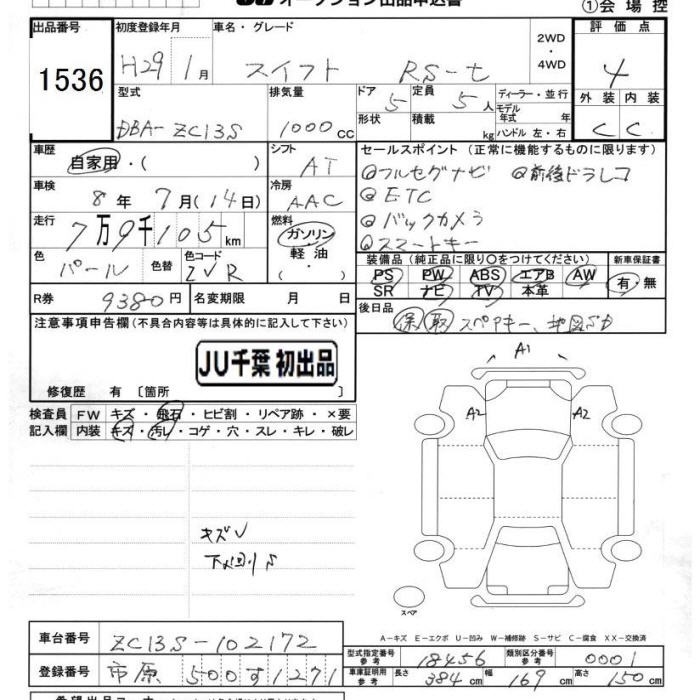 オークション出品申込書
①会場控
出品番号 初度登録年月 車名・グレード 評価点
1536 H29 1月 スイフト RS-t 2WD・4WD 4
型式 排気量 ドア 定員 ディーラー・並行 外装 内装
DBA-ZC13S 1000cc 5 5人 モデル年式 年 C C
形状 積載 kg ハンドル 左・右
車歴 自家用・( ) シフト AT セールスポイント (正常に機能するものに限ります)
車検 8年 7月(14日) 冷房 AAC ◎フルセグナビ ◎前後ドラレコ
◎ETC
走行 7万9千105km 燃料 ガソリン 軽油・( ) ◎バックカメラ
◎スマートキー
色 パール 色替 色コード ZVR 装備品 (純正品に限り○をつけてください) 新車保証書
PS PW ABS エアB AW 有・無
R券 9380円 名変期限 月 日 SR ナビ TV 本革
注意事項申告欄 (不具合内容等は具体的に記入して下さい) 後日品 保 取 スペアキー、
JU千葉 初出品
修復歴 有 〔箇所 〕
A1
検査員記入欄 FW キズ・飛石・ヒビ割・リペア跡・×要 A2 A2
内装 キズ・汚レ・コゲ・穴・スレ・キレ・破レ
キズ
下廻りS
スペア
A-キズ E-エクボ U-凹み W-補修跡 S-サビ C-腐食 XX-交換済
車台番号 ZC13S-102172 型式指定番号 参考 18456 類別区分番号 参考 0001
登録番号 市原 500す1271 車庫証明用 参考 長さ 384cm 幅 169cm 高さ 150cm
希望出品コーナー